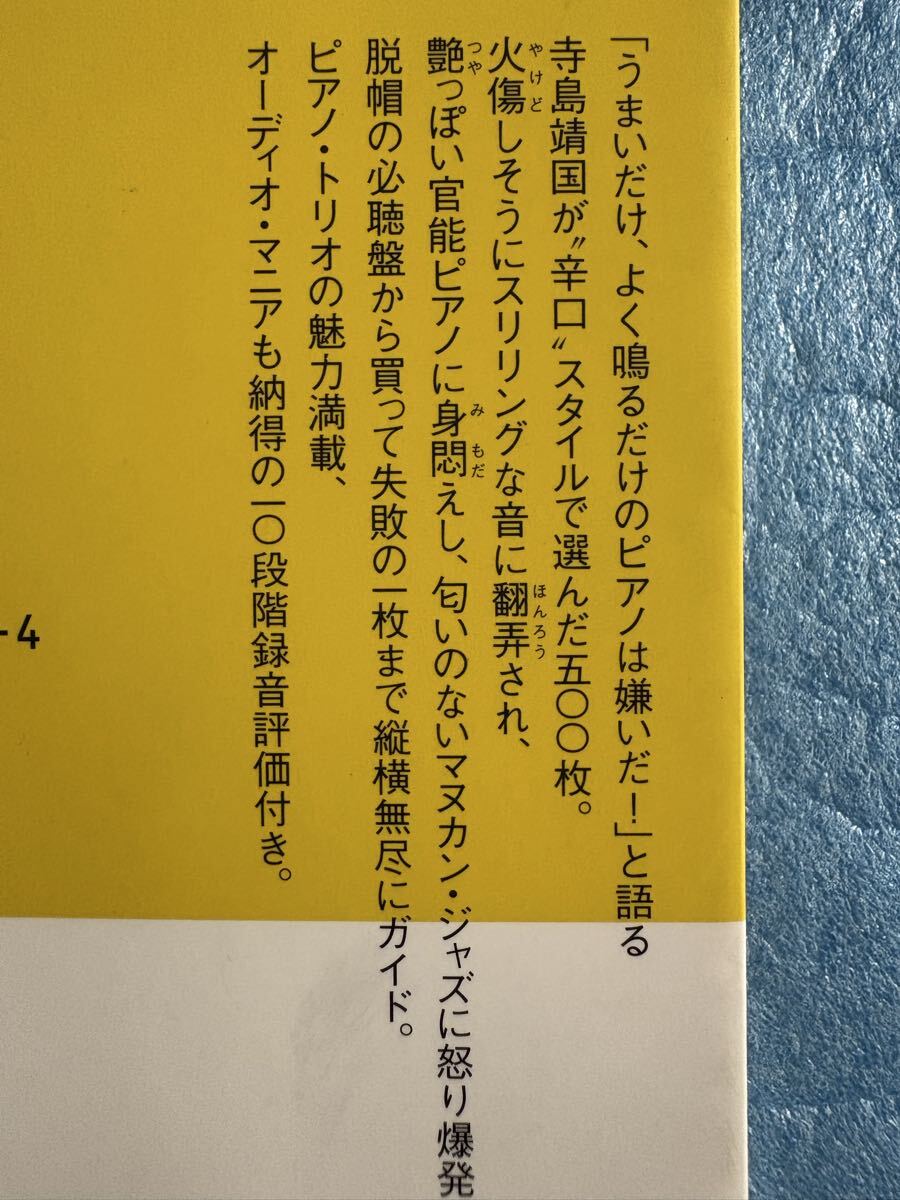 「うまいだけ、よく鳴るだけのピアノは嫌いだ!」と語る
寺島靖国が〝辛口〟スタイルで選んだ五〇〇枚。
火傷しそうにスリリングな音に翻弄され、
やけど
ほんろう
艶っぽい官能ピアノに身悶えし、匂いのないマヌカン・ジャズに怒り爆発
つや
みもだ
脱帽の必聴盤から買って失敗の一枚まで縦横無尽にガイド。
ピアノ・トリオの魅力満載、
オーディオ・マニアも納得の一〇段階録音評価付き。
-4